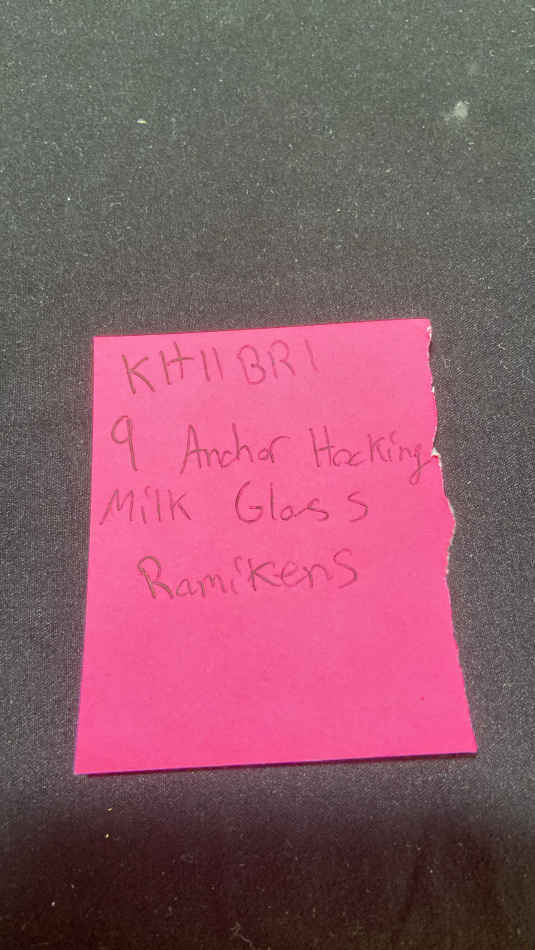 KH11BR1
9 Anchor Hocking
Milk Glass
Ramikens